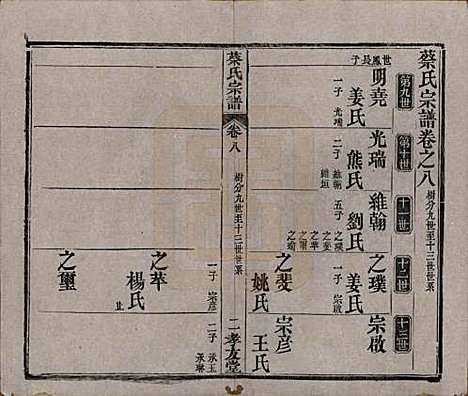 蔡氏宗譜卷之八 樹分九世至十三世世系
第九世
第十世
十一世
十二世
十三世
世鳳長子
明堯 姜氏
一子 光瑞
光瑞 熊氏
二子 維翰 維垣
維翰 劉氏
五子 之璞 之斐 之苹 之璽
之璞 姜氏
一子 宗啟
宗啟
之斐 姚氏
一子 宗彥
宗彥 王氏
二子 承玉 承琳
蔡氏宗譜 卷八 樹分九世至十三世世系 二 孝友堂
之苹 楊氏
之璽